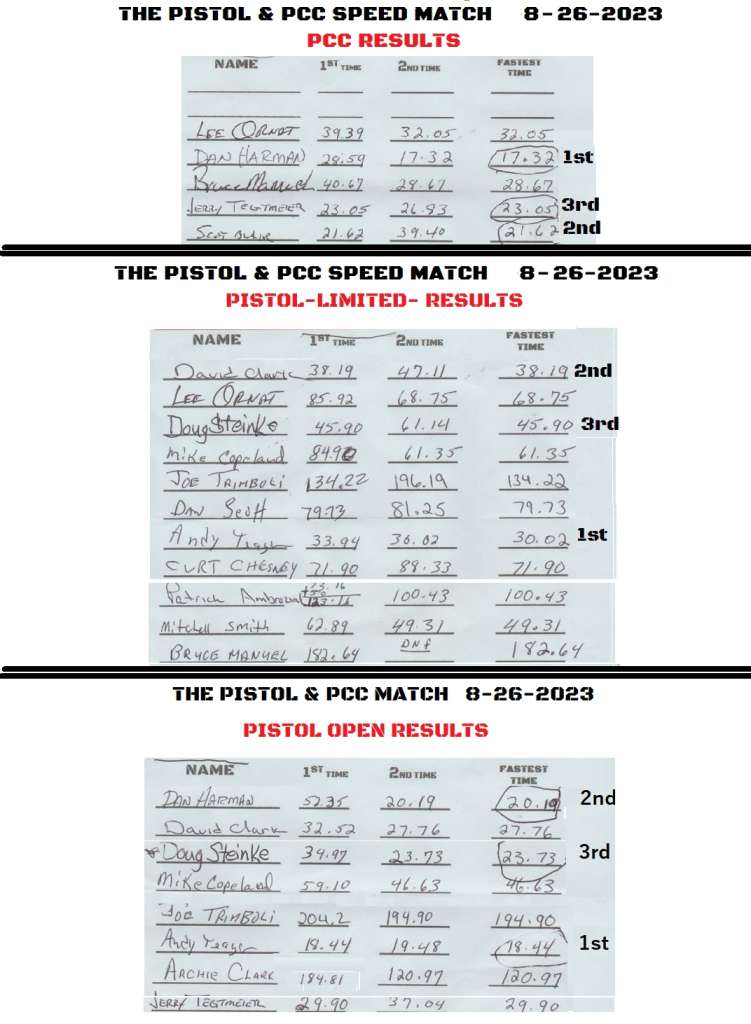 THE PISTOL & PCC SPEED MATCH 8-26-2023
PCC RESULTS
NAME 1ST TIME 2ND TIME FASTEST TIME
LEE ORNAT 39.39 32.05 32.05
DAN HARMAN 28.59 17.32 17.32 1st
Bruce Manuel 40.67 28.67 28.67
JERRY TEGTMEIER 23.05 26.83 23.05 3rd
SCOT BLAIR 21.62 39.40 21.62 2nd
THE PISTOL & PCC SPEED MATCH 8-26-2023
PISTOL-LIMITED- RESULTS
NAME 1ST TIME 2ND TIME FASTEST TIME
David Clark 38.19 47.11 38.19 2nd
LEE ORNAT 85.92 68.75 68.75
Doug Steinke 45.90 61.14 45.90 3rd
Mike Copeland 84.92 61.35 61.35
JOE TRIMBOLI 134.22 196.19 134.22
DAN Scott 79.73 81.25 79.73
Andy 33.94 30.02 30.02 1st
CURT CHESNEY 71.90 88.33 71.90
Patrick 123.16 100.43 100.43
Mitchell Smith 62.89 49.31 49.31
BRYCE MANUEL 182.64 DNF 182.64
THE PISTOL & PCC MATCH 8-26-2023
PISTOL OPEN RESULTS
NAME 1ST TIME 2ND TIME FASTEST TIME
DAN HARMAN 52.35 20.19 20.19 2nd
David Clark 32.52 27.76 27.76
Doug Steinke 34.97 23.73 23.73 3rd
Mike Copeland 59.10 46.63 46.63
JOE TRIMBOLI 204.2 194.90 194.90
Andy 18.44 19.48 18.44 1st
ARCHIE CLARK 184.81 120.97 120.97
JERRY TEGTMEIER 29.90 37.04 29.90